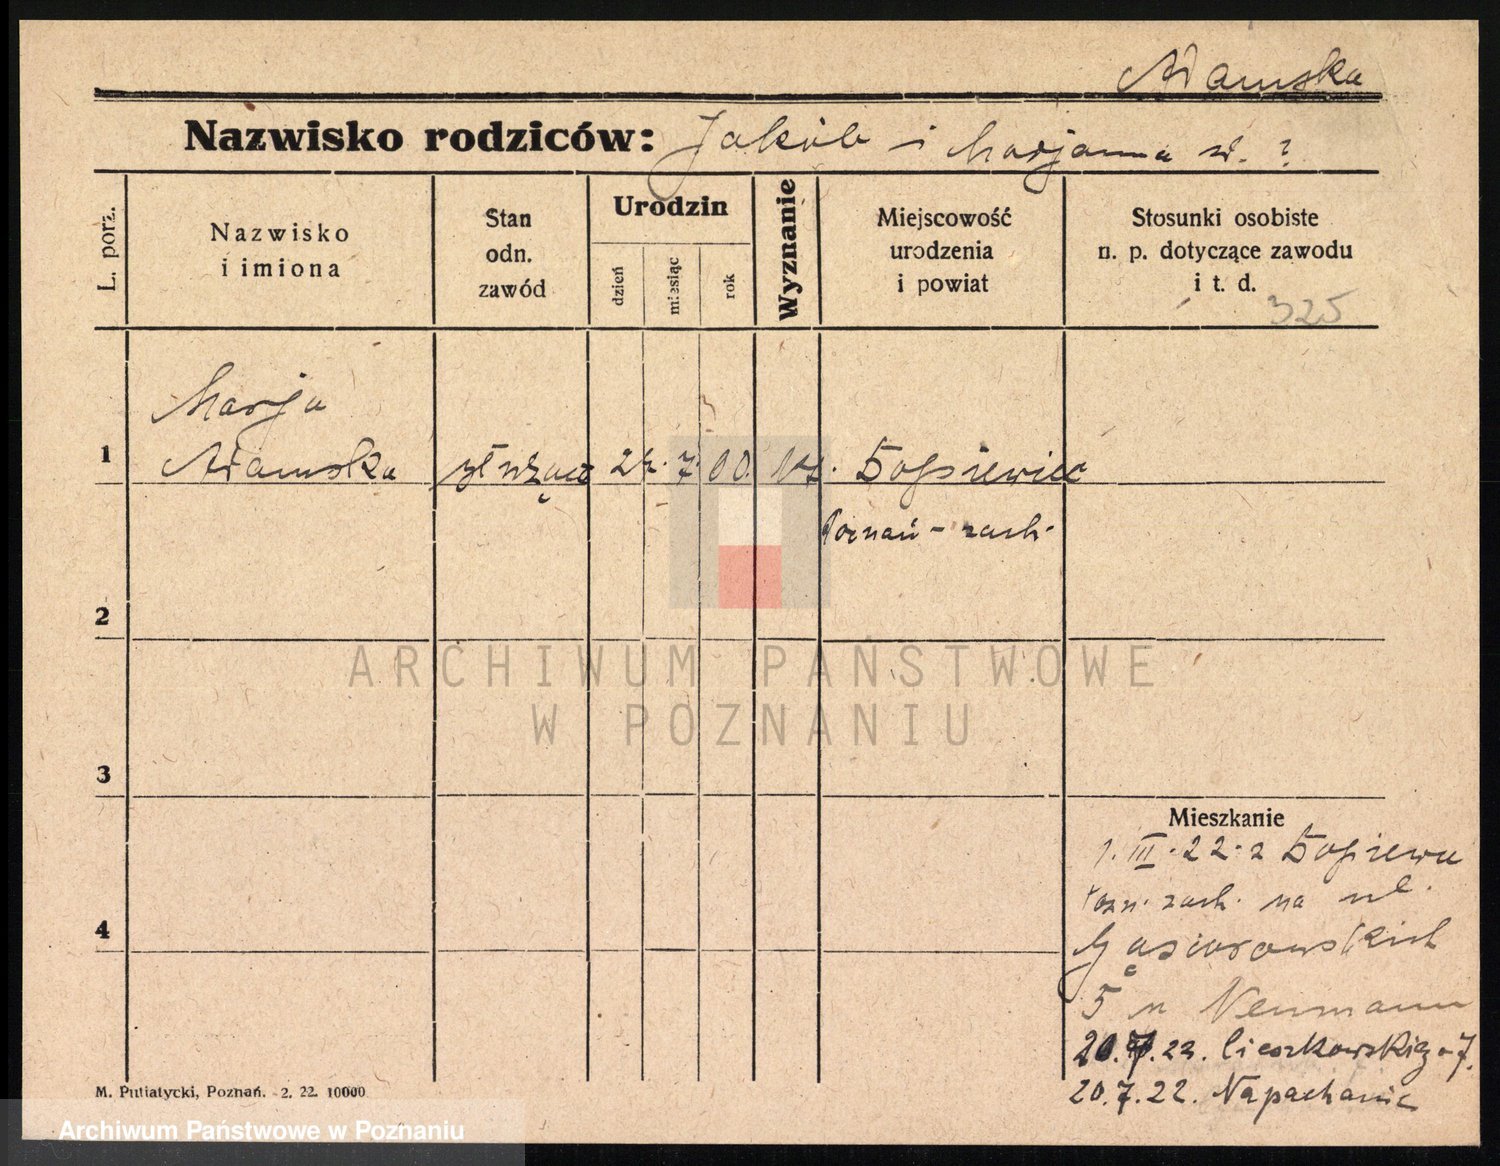 Adamska
Nazwisko rodziców: Jakób i Marjanna n. ?
L. porz.
Nazwisko
i imiona
Stan
odn.
zawód
Urodzin
dzień
miesiąc
rok
Wyznanie
Miejscowość
urodzenia
i powiat
Stosunki osobiste
n. p. dotyczące zawodu
i t. d.
325
Marja
1 Adamska służąca 7. 00.
Poznań - zach.
2
ARCHIWUM PAŃSTWOWE
W POZNANIU
3
Mieszkanie
1. III. 22. z Dopiewa
Pozn. zach. na ul.
4 Gąsiorowskich
5 Neumann
20.7.22. Cieszkowskiego 7.
20.7.22. Napachanie
M. Putiatycki, Poznań. 2. 22. 10000
Archiwum Państwowe w Poznaniu